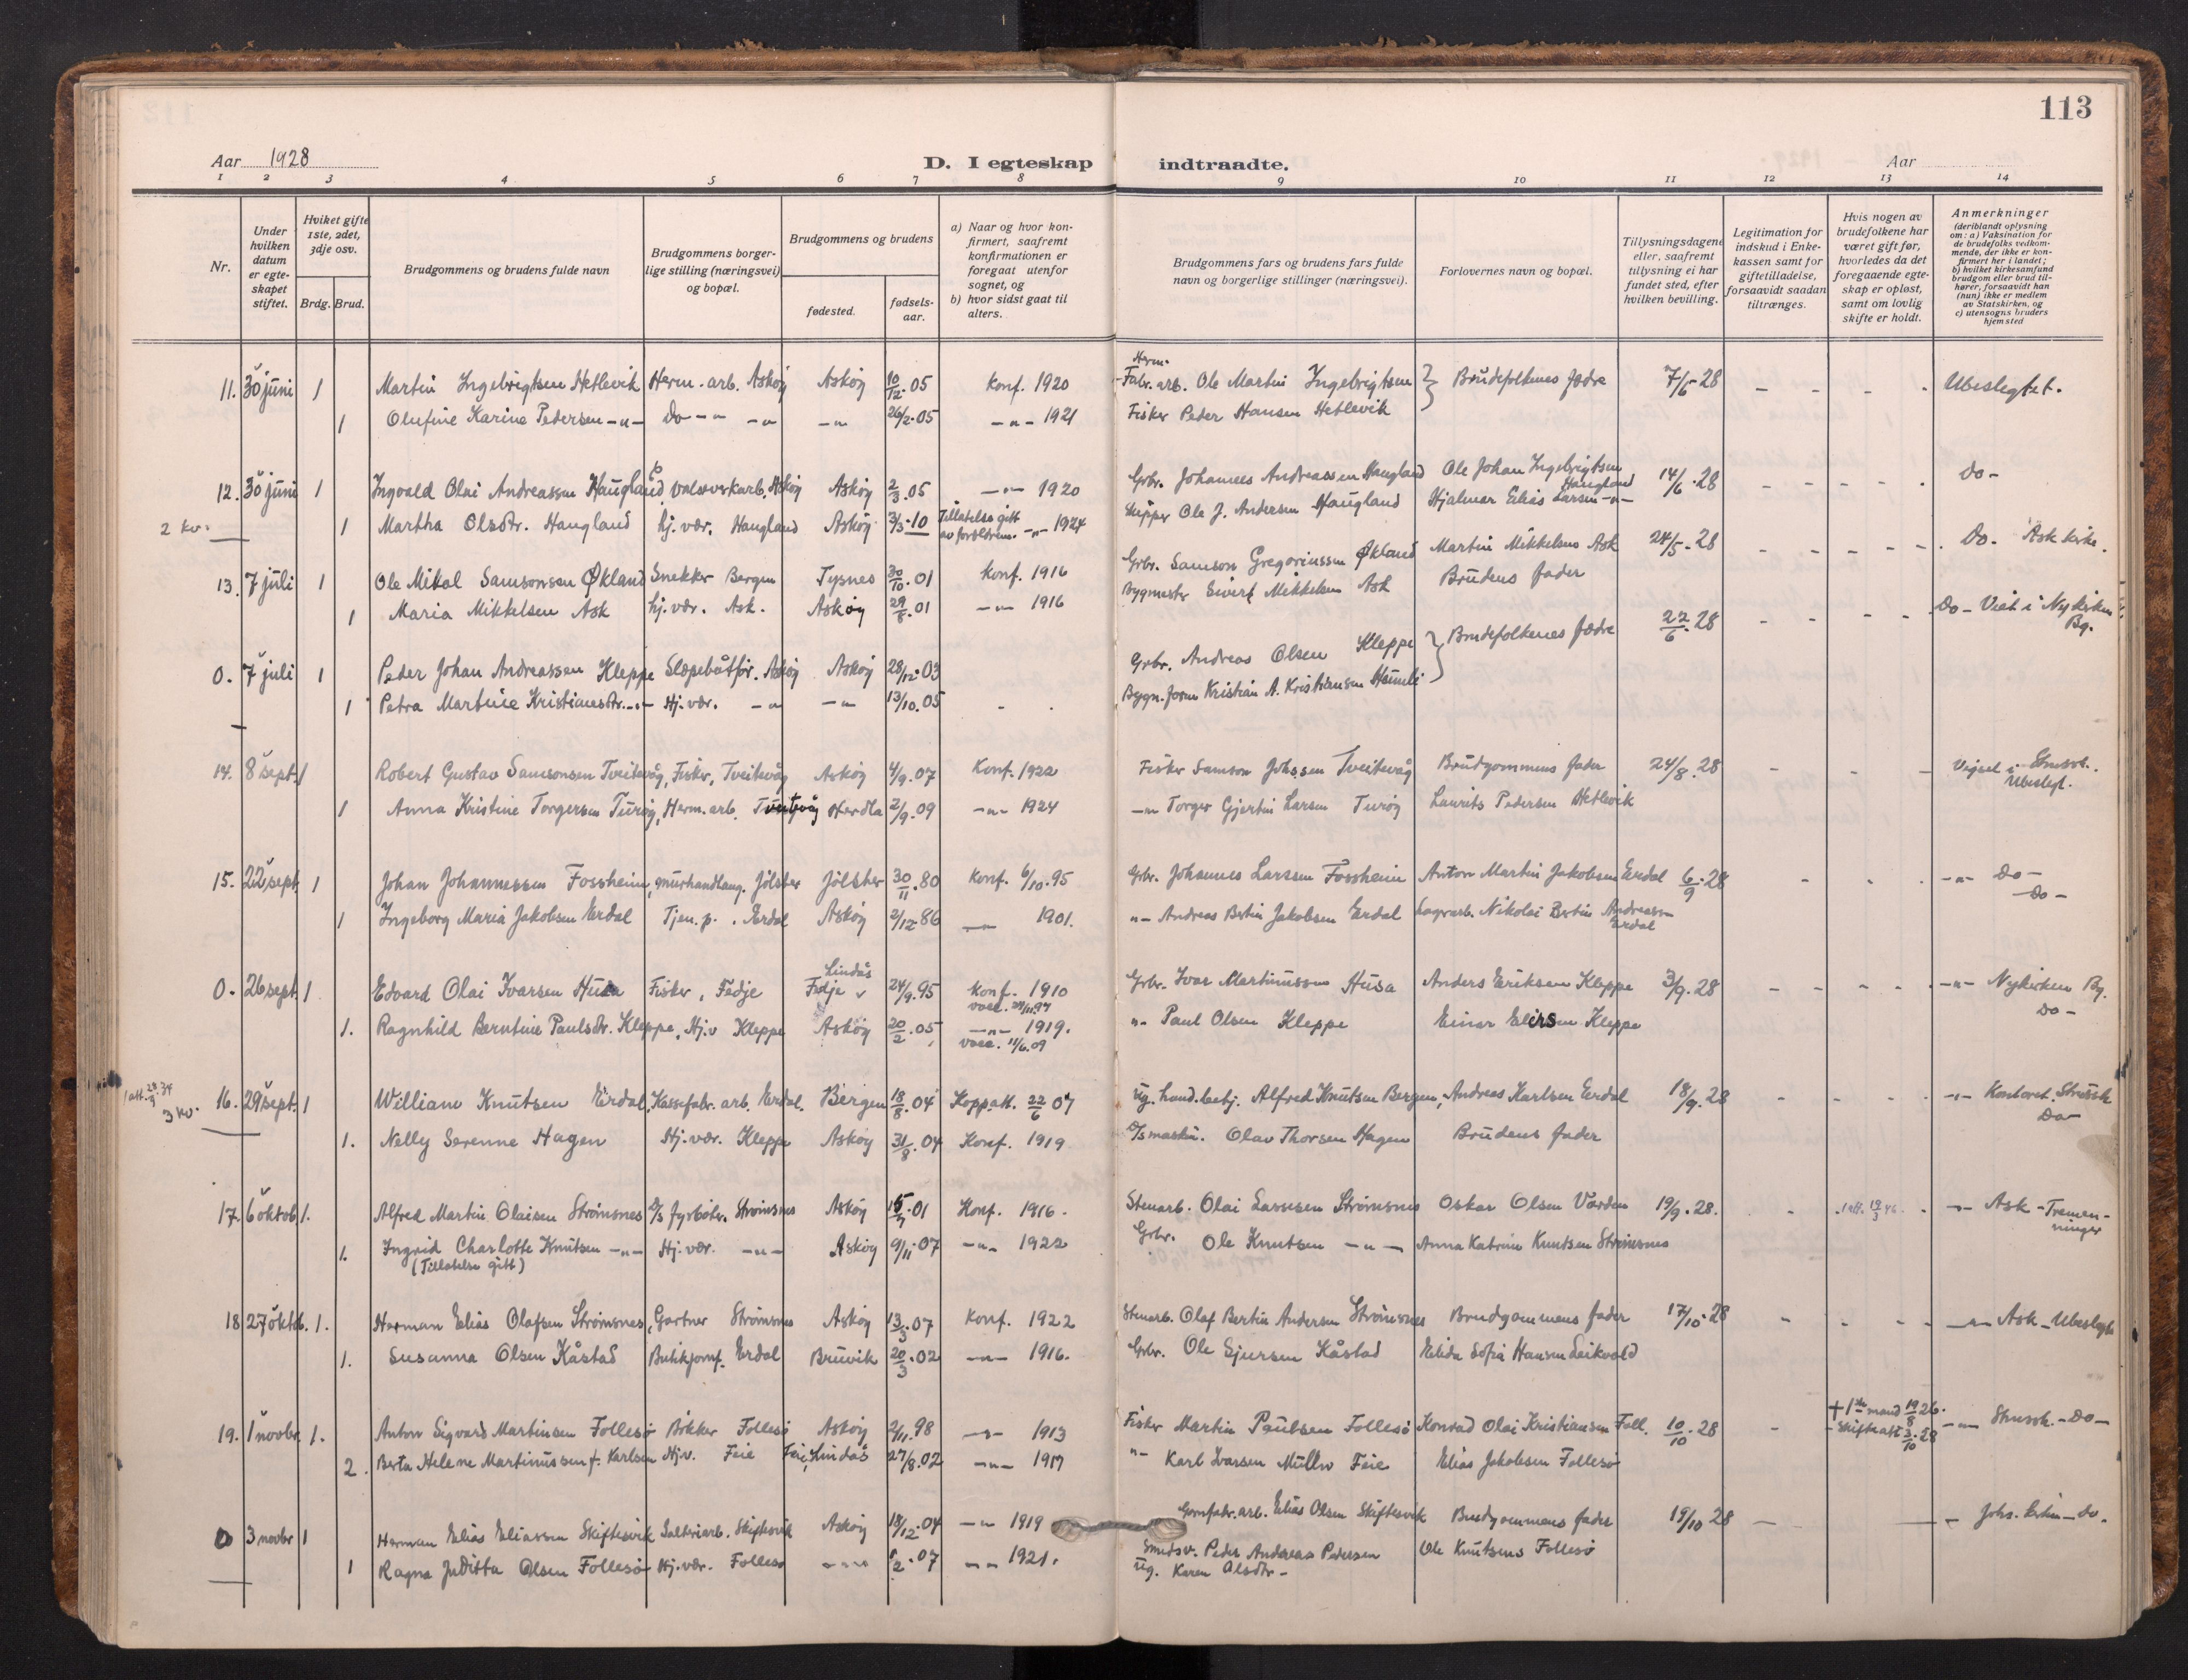 113
Aar 1928
D. I egteskap indtraadte.
Aar
1 2 3 4 5 6 7 8 9 10 11 12 13 14
Nr.
Under hvilken datum er egte-skapet stiftet.
Hviket gifte 1ste, 2det, 3dje osv.
Brdg. Brud.
Brudgommens og brudens fulde navn
Brudgommens borger-lige stilling (næringsvei) og bopæl.
Brudgommens og brudens
fødested.
fødsels-aar.
a) Naar og hvor kon-firmert, saafremt konfirmationen er foregaat utenfor sognet, og
b) hvor sidst gaat til alters.
Brudgommens fars og brudens fars fulde navn og borgerlige stillinger (næringsvei).
Forlovernes navn og bopæl.
Tillysningsdagene eller, saafremt tillysning ei har fundet sted, efter hvilken bevilling.
Legitimation for indskud i Enke-kassen samt for giftetilladelse, forsaavidt saadan tiltrænges.
Hvis nogen av brudefolkene har været gift før, hvorledes da det foregaaende egte-skap er opløst, samt om lovlig skifte er holdt.
Anmerkninger (deriblandt oplysning om: a) Vaksination for de brudefolks vedkom-mende, der ikke er kon-firmert her i landet; b) hvilket kirkesamfund brudgom eller brud til-hører, forsaavidt han (hun) ikke er medlem av Statskirken, og c) utensogns bruders hjemsted
11. 30 juni 1 Martin Ingebrigtsen Hetlevik Herm. arb. Askøy Askøy 10/12.05 Konf. 1920 Herm. Fabr. arb. Ole Martin Ingebrigtsen } Brudefolkenes fædre 7/6-28 - - - . Ubeslegtet.
1 Olufine Karine Pedersen -"- Do -"- -"- -"- 26/2.05 -"- 1921 Fisker Peder Hansen Hetlevik
12. 30 juni 1 Ingvald Olai Andreassen Haugland, Askøy Askøy 2/3.05 -"- 1920 Grbr. Johannes Andreassen Haugland Ole Johan Ingebrigtsen Haugland 14/6.28 - - - - . Do-
2 kv. 1 Martha Olsdtr. Haugland hj. vær. Haugland Askøy 3/3-10 Tillatelse gitt av forældrene. -"- 1924 Skipper Ole J. Andersen Haugland Hjalmar Elias Larsen -"-
13. 7 juli 1 Ole Mikal Samsonsen Økland Snekker Bergen Tysnes 30/10.01 Konf. 1916 Grbr. Samson Gregoriussen Økland Martin Mikkelsen Ask 24/5.28 - - - - - . Do. Ask kirke.
1 Maria Mikkelsen Ask hj. vær. Ask. Askøy 29/8.01 -"- 1916 Bygmester Sivert Mikkelsen Ask Brudens fader
0. 7 juli 1 Peder Johan Andreassen Kleppe Slæpebåtfør. Askøy Askøy 28/12.03 Grbr. Andreas Olsen Kleppe } Brudefolkenes fædre 22/6.28 - - - - Do- Viet i Nykirken Bg.
1 Petra Martine Kristiansdtr. -"- Hj. vær. -"- -"- 13/10.05 - . Bygn. form Kristian A. Kristiansen Heimli
14. 8 sept. 1 Robert Gustav Samsonsen Tveitevåg, Fisker, Tveitevåg Askøy 4/9.07 Konf. 1922 Fisker Samson Johssen Tveitevåg Brudgommens fader 24/8.28 - - - Vigsel i Strussh. Ubeslegt.
1 Anna Kristine Torgersen Turøy, Herm. arb. Tveitevåg Herdla 2/9.09 -"- 1924 -"- Torger Gjertin Larsen Turøy Laurits Pedersen Hetlevik
15. 22 sept 1 Johan Johannessen Fossheim, murhandlang. Jølster Jølster 30/11.80 Konf. 6/10.95 Grbr. Johannes Larssen Fossheim Anton Martin Jakobsen Erdal 6/9.28 - . . -"- Do-
1 Ingeborg Maria Jakobsen Erdal Tjen. p. . Erdal Askøy 2/12.86 -"- 1901. "- Andreas Bertin Jakobsen Erdal Lagerarb. Nikolai Bertin Andreassen Erdal Do-
0. 26 sept. 1 Edvard Olai Ivarsen Husa Fisker, Fedje Lindås Fedje 24/9.95 Konf. 1910 Grbr. Ivar Martinussen Husa Anders Eriksen Kleppe 3/9.28 - - - - -"- Nykirken Bg.
1. Ragnhild Berntine Paulsdtr. Kleppe, Hj.v Kleppe Askøy 20/2.05 -"- 1919. vacc. 11/6.09 "- Paul Olsen Kleppe Einar Eliesen Kleppe Do-
3 kv. 16. 29 sept. 1 William Knutsen Erdal, Kassefabr. arb. Erdal. Bergen 18/8.04 Koppatt. 22/6 07 ug. hand. betj. Alfred Knutsen Bergen, Andreas Karlsen Erdal 18/9.28 - - - - -"- Kontoret. Strussh.
1. Nelly Serenne Hagen Hj. vær. Kleppe Askøy 31/8.04 Konf. 1919 D/s maskin. Olav Thorsen Hagen Brudens fader Do-
17. 6 oktob 1. Alfred Martin Olaisen Strømsnes D/s fyrbøter. Strømsnes Askøy 15/7.01 Konf. 1916. Stenarb. Olai Larssen Strømsnes Oskar Olsen Varden 19/9.28. . -"- Ask - Tremen-ninger
1. Ingrid Charlotte Knutsen -"- Hj. vær. -"- Askøy 9/11.07 -"- 1922 Grbr. Ole Knutsen -"- Anna Katrine Knutsen Strømsnes
(Tillatelse gitt)
18 27 oktb. 1. Herman Elias Olafsen Strømsnes, Gartner Strømsnes Askøy 13/3.07 Konf. 1922 Stenarb. Olaf Bertin Andersen Strømsnes Brudgommens fader 17/10.28 - - - - -"- Ask - Ubeslegt
1. Susanna Olsen Kåstad Butikjomf. Erdal Bruvik 20/3.02 -"- 1916. Grbr. Ole Sjursen Kåstad Elida Sofia Hansen Leikvold
19. 1 novbr 1. Anton Sigvard Martinsen Follesø Bøkker Follesø Askøy 2/11.98 -"- 1913 Fisker Martin Paulsen Follesø Konrad Olai Kristiansen Foll. 10/10.28 - † 1ste mand 19/8 26. -Skifteatt 3/10.28 -"- Strussh. - Do-
2. Berta Helene Martinussen f. Karlsen Hj.v. Feie Feie, Lindås 27/8.02 -"- 1917 "- Karl Ivarsen Feie Elias Jakobsen Follesø
0 3 novbr 1 Herman Elias Eliassen Skiftesvik Salteriarb. Skiftesvik Askøy 18/12.04 -"- 1919 Elias Olsen Skiftesvik Brudgommens fader 19/10 28 - - Johs. kirken - do.
1 Ragna Juditta Olsen Follesø Hj. vær. Follesø -"- 1/2.07 -"- 1921. Smedsv. Peder Andreas Pedersen Ole Knutsens Follesø
ug. Karen Olsdtr-